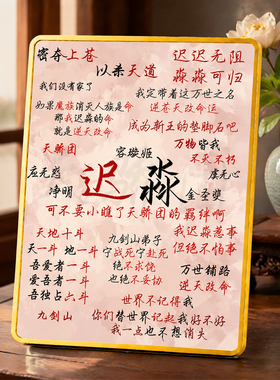 密夺上苍
迟迟无阻
以杀天道
淼淼可归
我们没有家了
我定带着这万世之名
如果魔族消灭人族是命
逆苍天改命运
那我迟淼的命
就是逆天改命
成为新王的垫脚石吧
天骄团
容璇姬
万物皆我
不灭不朽
虞无心
净明
迟
淼
金圣哭
可不要小瞧了天骄团的羁绊啊
天地十斗
九剑山弟子
我迟淼惹事
天一斗 地一斗
宁战死宁赴死
但绝不怕事
吾爱者一斗
绝不求饶
万世铺路
爱吾者一斗
也绝不妥协
逆天改命
吾独占六斗
世界不记得我
九剑山
你们替世界记起我好不好
我一点也不想消失